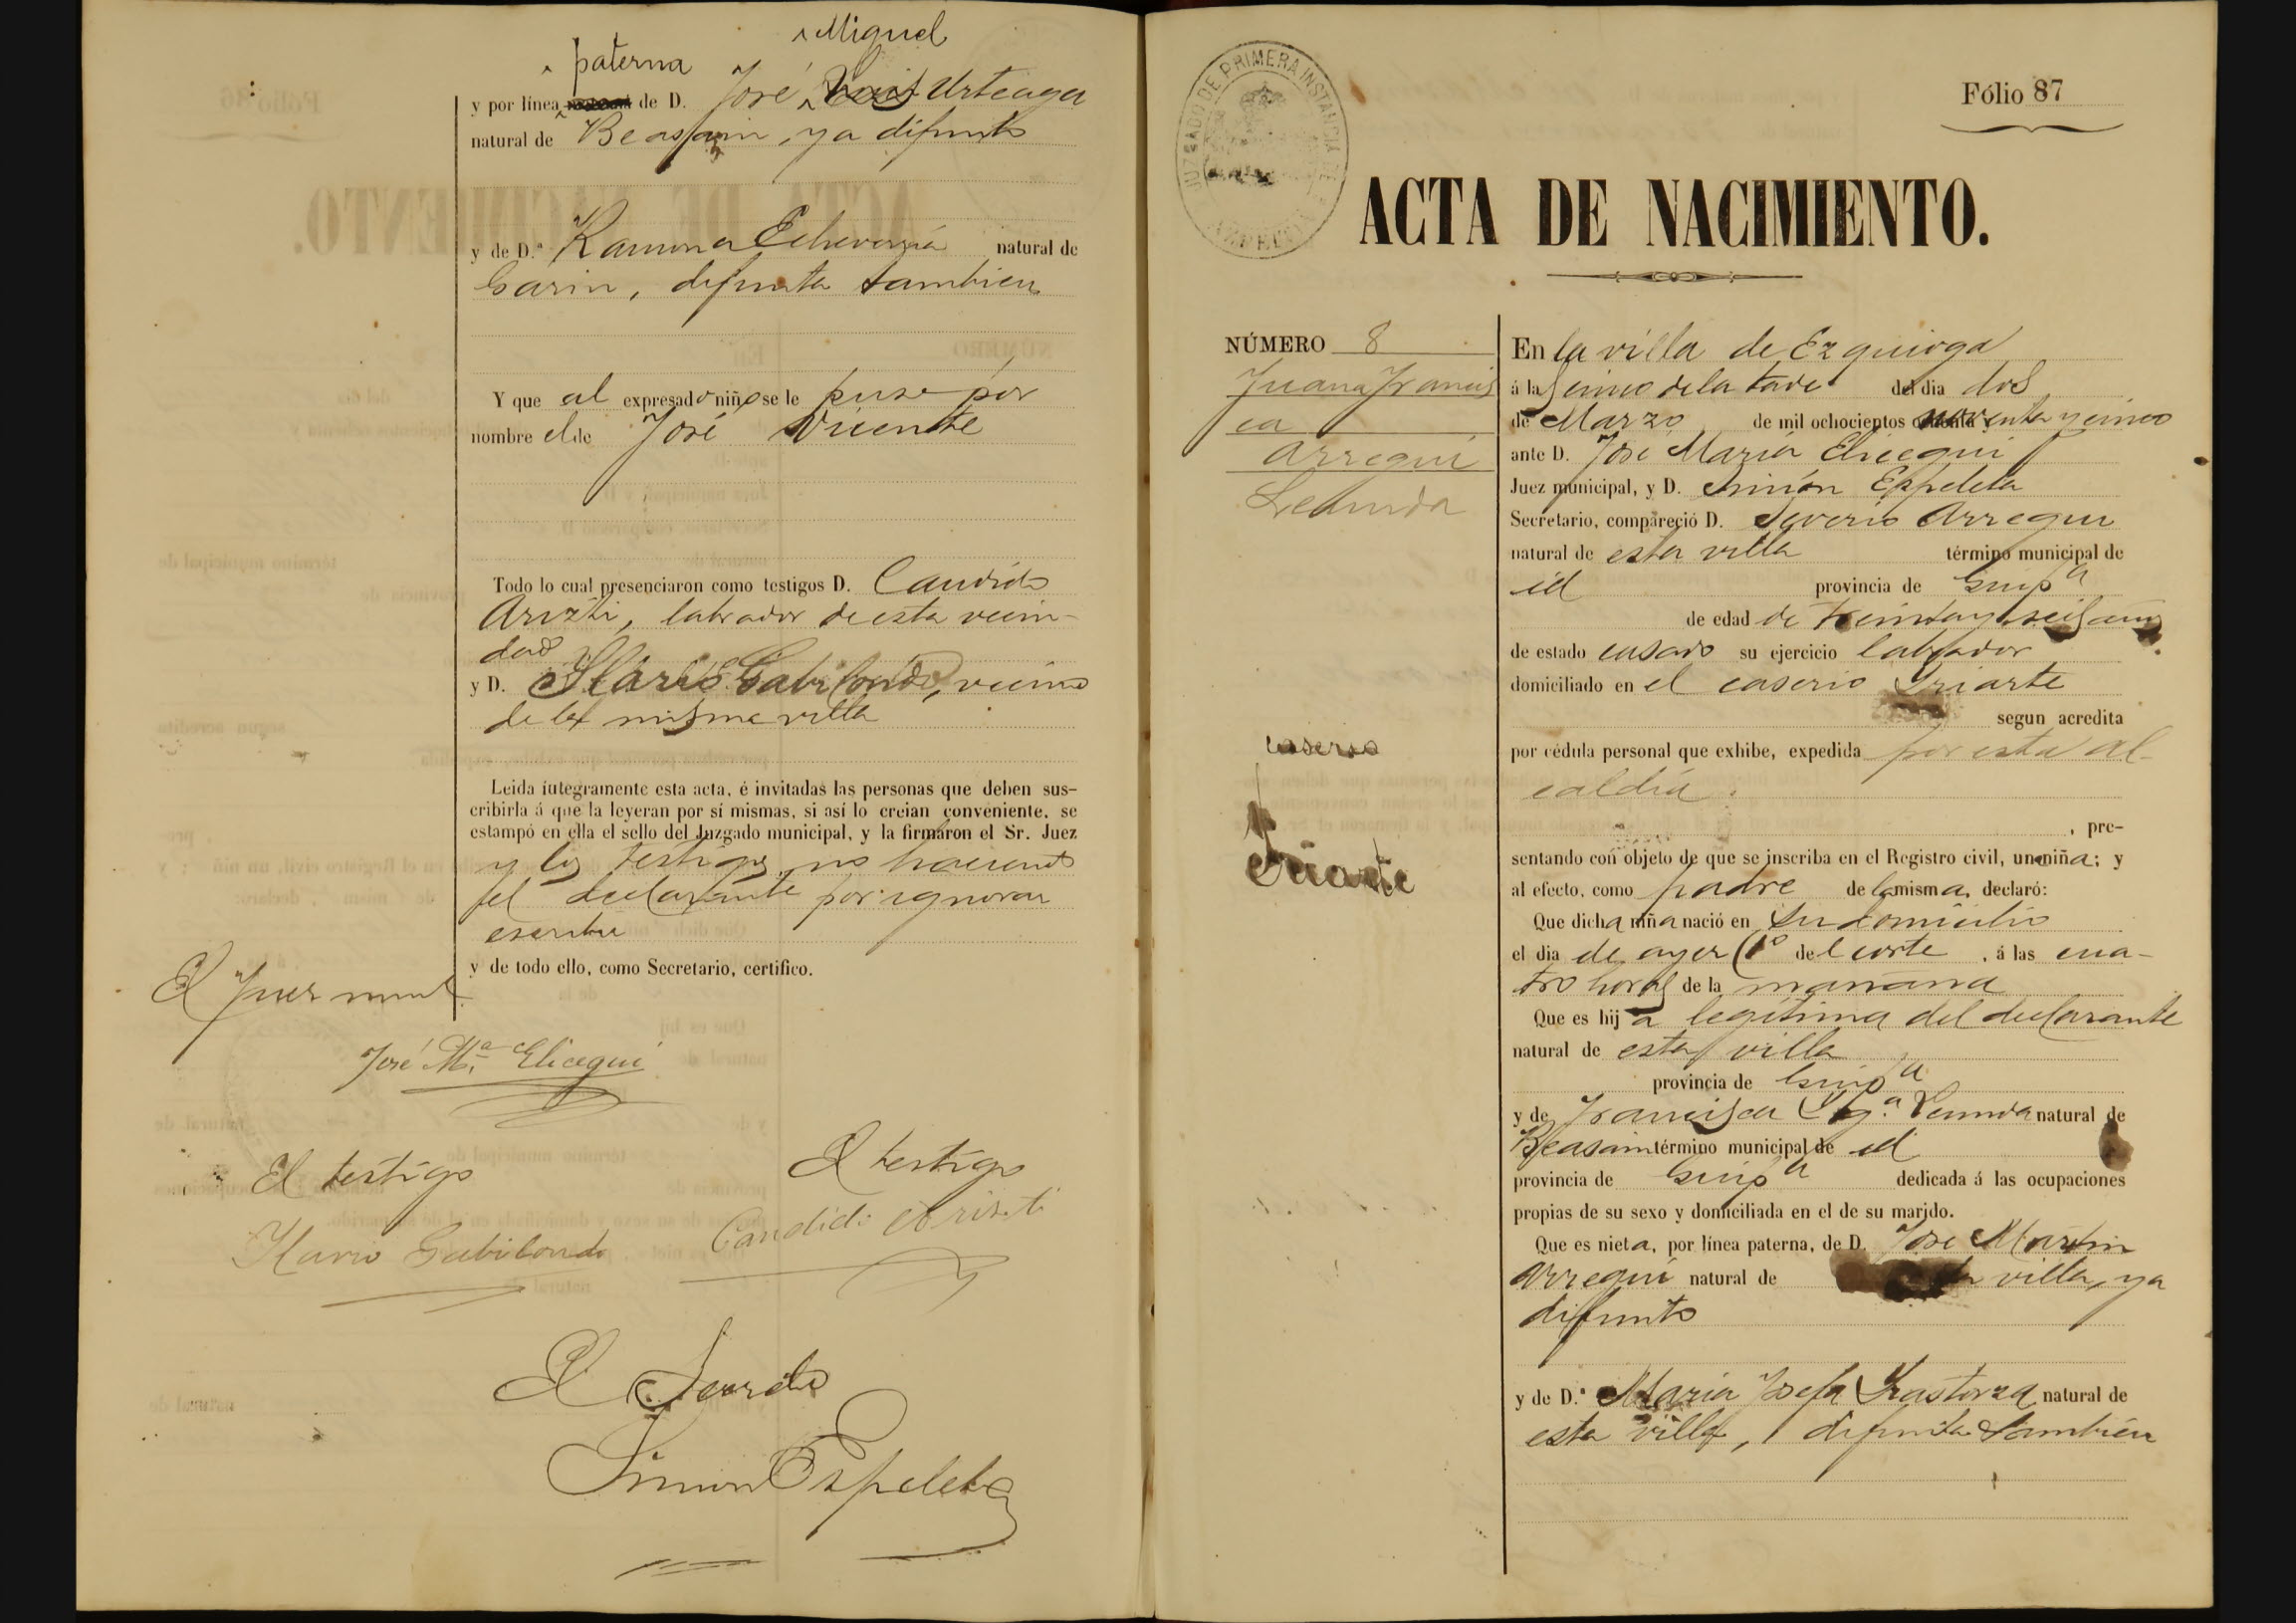 paterna
Miguel
y por línea de D. José Urteaga
natural de Beasain, ya difunto
y de D.ª Ramona Echeverria natural de
Garin, difunta tambien
Y que al expresado niño se le puso por
nombre el de José Vicente
Todo lo cual presenciaron como testigos D. Candido
Arizti, labrador de esta vecin-
dad
y D. Ilario Gabilondo, vecino
de la misma villa
Leida íntegramente esta acta, é invitadas las personas que deben sus-
cribirla á que la leyeran por sí mismas, si así lo creian conveniente, se
estampó en ella el sello del Juzgado municipal, y la firmaron el Sr. Juez
y los testigos, no haciendo
el declarante por ignorar
escribir
y de todo ello, como Secretario, certifico.
El Juez munl
José M.ª Elicegui
El testigo
El testigo
Ilario Gabilondo
Candido Arizti
El Secrdo
Simon Espeleta
JUZGADO DE PRIMERA INSTANCIA DE
Fólio 87
ACTA DE NACIMIENTO.
NÚMERO 8
Juana Francis
ca
Arregui
Lecunda
caserio
Iriarte
En la villa de Ezquioga
á las cinco de la tarde del dia dos
de Marzo de mil ochocientos noventa y cinco
ante D. José María Elicegui
Juez municipal, y D. Simón Espeleta
Secretario, compareció D. Severio Arregui
natural de esta villa término municipal de
id provincia de Guipª
de edad de treinta y seis años
de estado casado su ejercicio labrador
domiciliado en el caserio Iriarte
segun acredita
por cédula personal que exhibe, expedida por esta al-
caldía.
, pre-
sentando con objeto de que se inscriba en el Registro civil, una niña; y
al efecto, como padre de la misma, declaró:
Que dicha niña nació en su domicilio
el dia de ayer (1º del corte , á las cua-
tro horas de la mañana
Que es hija legítima del declarante
natural de esta villa
provincia de Guipª
y de Francisca Igª Lecunda natural de
Beasain término municipal de id
provincia de Guipª dedicada á las ocupaciones
propias de su sexo y domiciliada en el de su marido.
Que es nieta, por línea paterna, de D. José Martin
Arregui natural de villa, ya
difunto
y de D.ª Maria Josefa Irastorza natural de
esta villa, difunta tambien